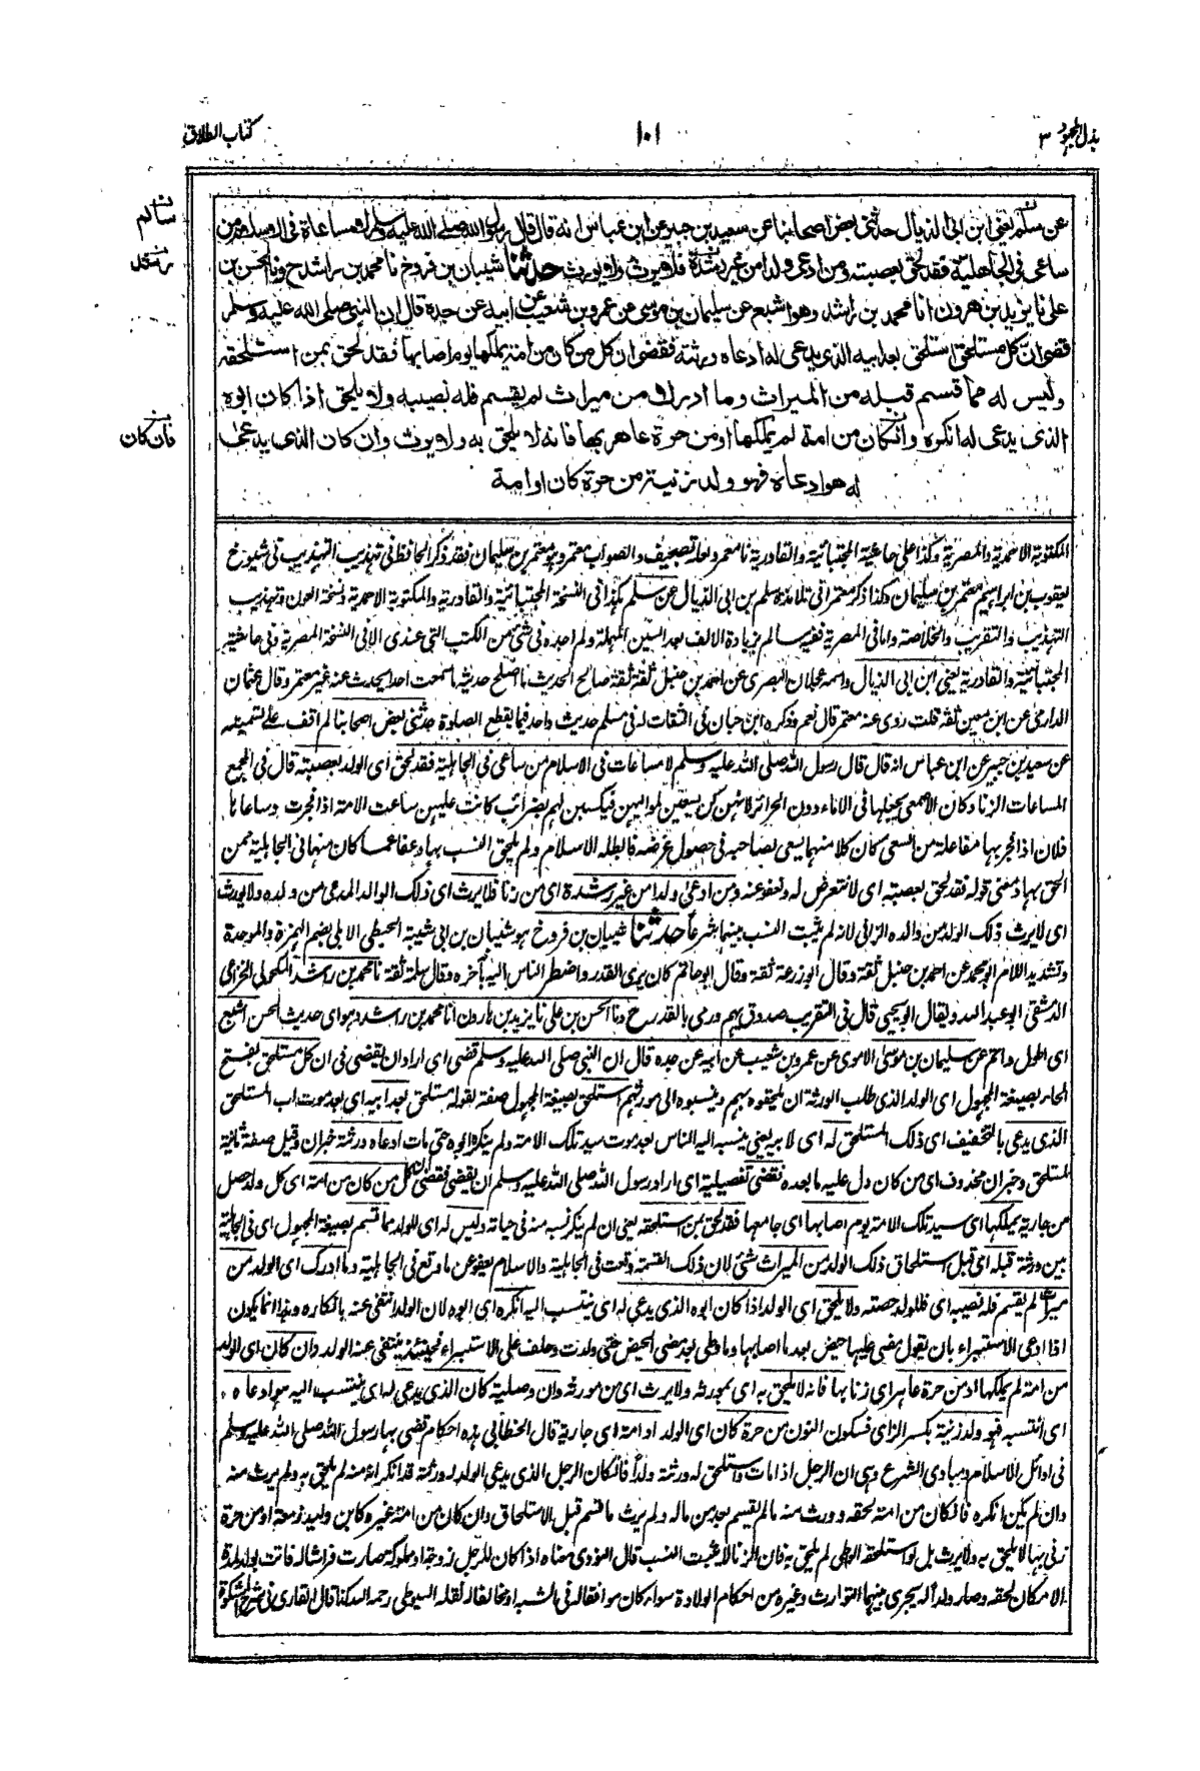 بذل المجهود ٣
١٠١
كتاب الطلاق
عن سلم يعني ابن ابى الذيال حدثنى بعض اصحابنا عن سعيد بن جبير عن ابن عباس انه قال قال رسول الله صلى الله عليه وسلم لا مساعاة فى الاسلام من
ساعى فى الجاهلية فقد لحق بعصبته ومن ادعى ولدا من غير رشدة فلا يرث ولا يورث حدثنا شيبان بن فروخ نا محمد بن راشد ح ونا الحسن بن
على نا يزيد بن هرون انا محمد بن راشد وهو اشبع عن سليمان بن موسى عن عمرو بن شعيب عن ابيه عن جده قال ان النبى صلى الله عليه وسلم
قضى ان كل مستلحق استلحق بعد ابيه الذى يدعى له ادعاه ورثته فقضى ان كل من كان من امة يملكها يوم اصابها فقد لحق بمن استلحقه
وليس له مما قسم قبله من الميراث وما ادرك من ميراث لم يقسم فله نصيبه ولا يلحق اذا كان ابوه
الذى يدعى له انكره وان كان من امة لم يملكها او من حرة عاهر بها فانه لا يلحق به ولا يرث وان كان الذى يدعى
له هو ادعاه فهو ولد زنية من حرة كان او امة
سالم
فان كان
المكتوبة الاحمدية والمصرية وكذا على حاشية المجتبائية والقادرية نا معمر ولعله تصحيف والصواب معتمر وهو معتمر بن سليمان فقد ذكر الحافظ فى تهذيب التهذيب فى شيوخ
يعقوب بن ابراهيم معتمر بن سليمان وكذا ذكر معتمرا فى تلامذة سلم بن ابى الذيال عن سلم هكذا فى النسخة المجتبائية والقادرية والمكتوبة الاحمدية ونسخة العون وتهذيب
التهذيب والتقريب والخلاصة واما فى المصرية ففيه سالم بزيادة الالف بعد السين المهملة ولم اجده فى شئ من الكتب التى عندى الا فى النسخة المصرية وفى حاشية
المجتبائية والقادرية يعنى ابن ابى الذيال واسمه عجلان البصرى عن احمد بن حنبل ثقة ثقة صالح الحديث ما اصلح حديثه ما سمعت احدا يحدث عنه غير معتمر وقال عثمان
الدارمى عن ابن معين ثقة قلت روى عنه معتمر قال نعم وذكره ابن حبان فى الثقات له فى مسلم حديث واحد فيما يقطع الصلوة حدثنى بعض اصحابنا لم اقف على تسميته
عن سعيد بن جبير عن ابن عباس انه قال قال رسول الله صلى الله عليه وسلم لا مساعات فى الاسلام من ساعى فى الجاهلية فقد لحق اى الولد بعصبته قال فى المجمع
المساعات الزنا وكان الاصمعى يجعلها فى الاماء دون الحرائر لانهن كن يسعين لمواليهن فيكسبن لهم بضرائب كانت عليهن ساعت الامة اذا فجرت وساعاها
فلان اذا فجر بها مفاعلة من السعى كان كلا منهما يسعى لصاحبه فى حصول غرضه فابطله الاسلام ولم يلحق النسب بها وعفا عما كان منها فى الجاهلية ممن
الحق بها ومعنى قوله فقد لحق بعصبته اى لا نتعرض له ونعفو عنه ومن ادعى ولدا من غير رشدة اى من زنا فلا يرث اى ذلك الوالد المدعى من ولده ولا يورث
اى لا يرث ذلك الولد من والده الزانى لانه لم يثبت النسب بينهما شرعا حدثنا شيبان بن فروخ هو شيبان بن ابى شيبة الحبطى الابلى بضم الهمزة والموحدة
وتشديد اللام ابو محمد عن احمد بن حنبل ثقة وقال ابوزرعة ثقة وقال ابو حاتم كان يرى القدر واضطر الناس اليه بآخره وقال مسلمة ثقة نا محمد بن راشد المكحولى الخزاعى
الدمشقى ابو عبد الله ويقال ابو يحيى قال فى التقريب صدوق يهم ورمى بالقدر ح ونا الحسن بن على نا يزيد بن هارون انا محمد بن راشد وهو اى حديث الحسن اشبع
اى اطول واتم عن سليمان بن موسى الاموى عن عمرو بن شعيب عن ابيه عن جده قال ان النبى صلى الله عليه وسلم قضى اى اراد ان يقضى فى ان كل مستلحق بفتح
الحاء بصيغة المجهول اى الولد الذى طلب الورثة ان يلحقوه بهم وينسبوه الى مورثهم استلحق بصيغة المجهول صفة لقوله مستلحق بعد ابيه اى بعد موت اب المستلحق
الذى يدعى بالتخفيف اى ذلك المستلحق له اى لابيه يعنى ينسبه اليه الناس بعد موت سيد تلك الامة ولم ينكره ابوه حتى مات ادعاه ورثته خبر ان وقيل صفة ثانية
لمستلحق وخبر ان محذوف اى من كان دل عليه ما بعده فقضى تفصيلية اى اراد رسول الله صلى الله عليه وسلم ان يقضى فقضى ان كل من كان من امة اى كل ولد حصل
من جارية يملكها اى سيد تلك الامة يوم اصابها اى جامعها فقد لحق بمن استلحقه يعنى ان لم ينكر نسبه منه فى حياته وليس له اى للولد مما قسم بصيغة المجهول اى فى الجاهلية
بين ورثته قبله اى قبل استلحاق ذلك الولد من الميراث شئ لان ذلك القسمة وقعت فى الجاهلية والاسلام يعفو عن ما وقع فى الجاهلية وما ادرك اى الولد من
ميراث لم يقسم فله نصيبه اى فللولد حصته ولا يلحق اى الولد اذا كان ابوه الذى يدعى له اى ينتسب اليه انكره اى ابوه لان الولد انتفى عنه بانكاره وهذا انما يكون
اذا ادعى الاستبراء بان يقول مضى عليها حيض بعد ما اصابها وما وطى بعد مضى الحيض حتى ولدت وحلف على الاستبراء فحينئذ ينتفى عنه الولد وان كان اى الولد
من امة لم يملكها او من حرة عاهر اى زنا بها فانه لا يلحق به اى بمورثه ولا يرث اى من مورثه وان وصلية كان الذى يدعى له اى ينتسب اليه هو ادعاه
اى انتسبه فهو ولد زنية بكسر الزاى فسكون النون من حرة كان اى الولد او امة اى جارية قال الخطابى هذه احكام قضى بها رسول الله صلى الله عليه وسلم
فى اوائل الاسلام ومبادى الشرع وهى ان الرجل اذا مات واستلحق له ورثته ولدا فان كان الرجل الذى يدعى الولد له ورثته قد انكر انه منه لم يلحق به ولم يرث منه
وان لم يكن انكره فان كان من امته لحقه وورث منه ما لم يقسم بعد من ماله ولم يرث ما قسم قبل الاستلحاق وان كان من امة غيره كابن وليدة زمعة او من حرة
زنى بها لا يلحق به ولا يرث بل لو استلحقه الواطى لم يلحق به فان الزنا لا يثبت النسب قال النووى معناه اذا كان للرجل زوجة او مملوكة صارت فراشا له فاتت بولد لمدة
الامكان لحقه وصار ولدا له يجرى بينهما التوارث وغيره من احكام الولادة سواء كان موافقا له فى الشبه او مخالفا له نقله السيوطى رحمه الله كذا قال القارى فى شرح المشكوة